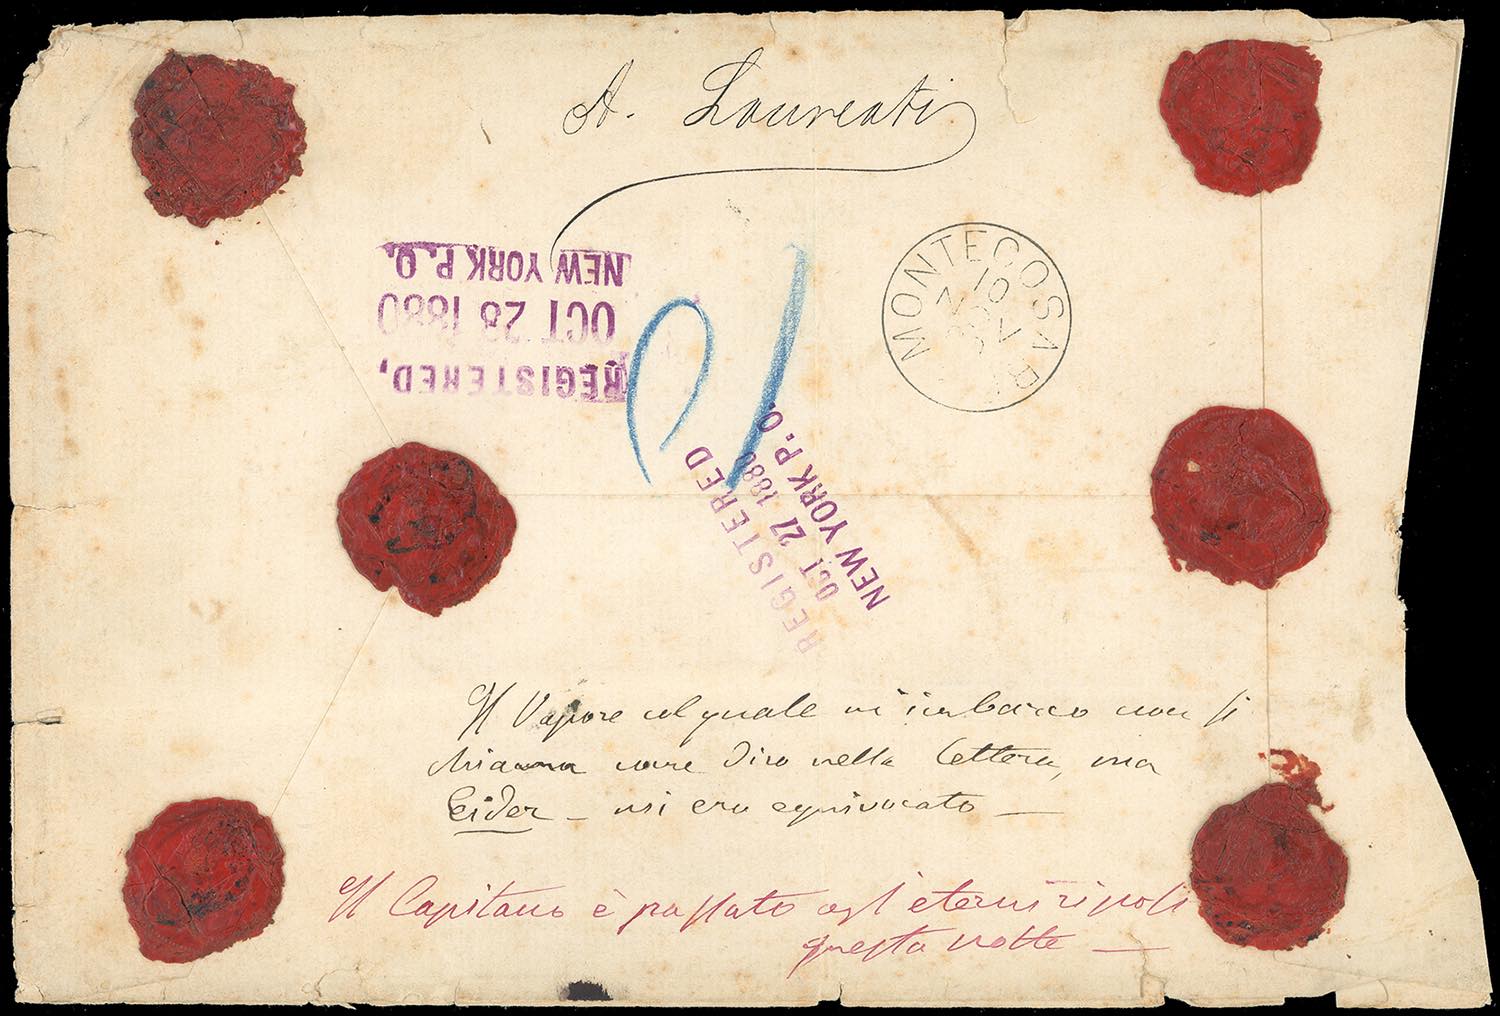 A. Laureati
REGISTERED,
OCT 28 1880
NEW YORK P.O.
MONTECOSAR
10
NOV
80
REGISTERED
OCT 27 1880
NEW YORK P.O.
Il Vapore col quale m'imbarco non si
chiama come dico nella lettera, ma
Leider – mi ero equivocato —
Il Capitano è passato agl'eterni riposi
questa notte —